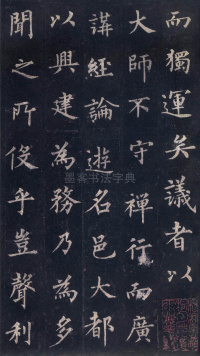 而獨運矣議者以
大師不守禪行而廣
講經論遊名邑大都
以興建為務乃為多
聞之所伇乎豈聲利
墨客书法字典